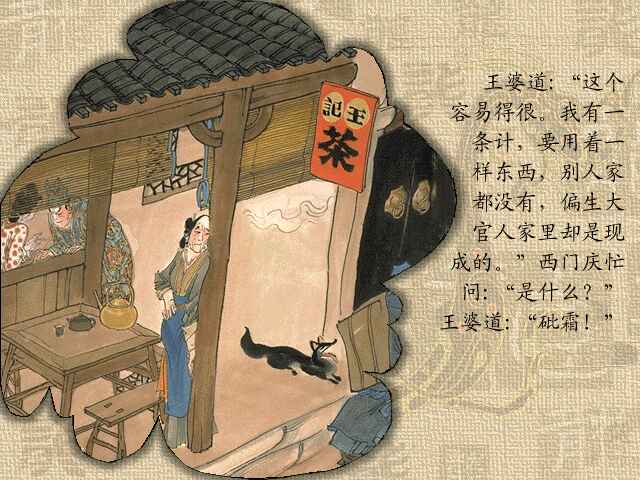 王記
茶
王婆道：“这个
容易得很。我有一
条计，要用着一
样东西，别人家
都没有，偏生大
官人家里却是现
成的。”西门庆忙
问：“是什么？”
王婆道：“砒霜！”